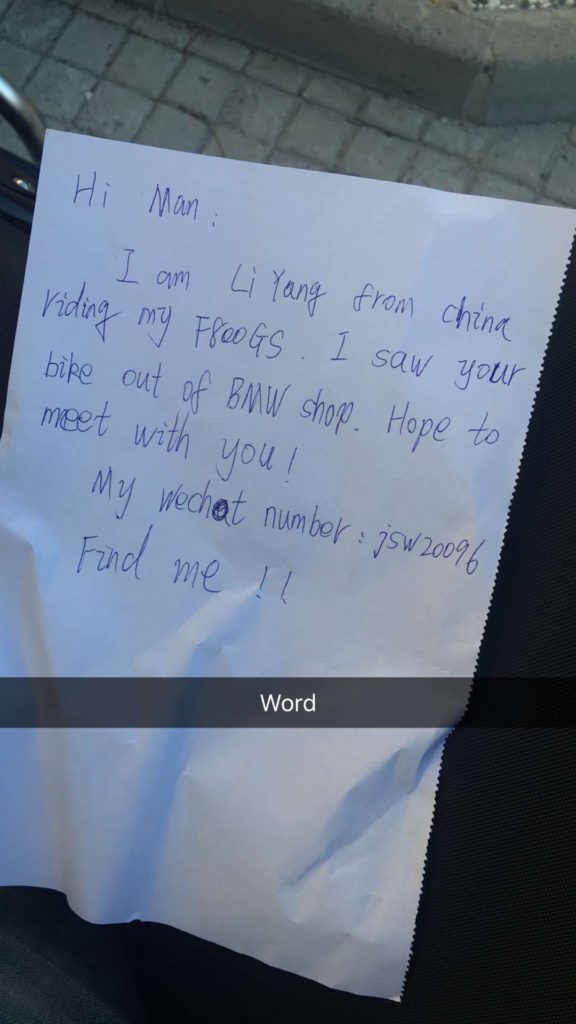 Hi Man:
I am Li Yang from china
riding my F800GS. I saw your
bike out of BMW shop. Hope to
meet with you!
My wechat number: jsw20096
Find me !!
Word